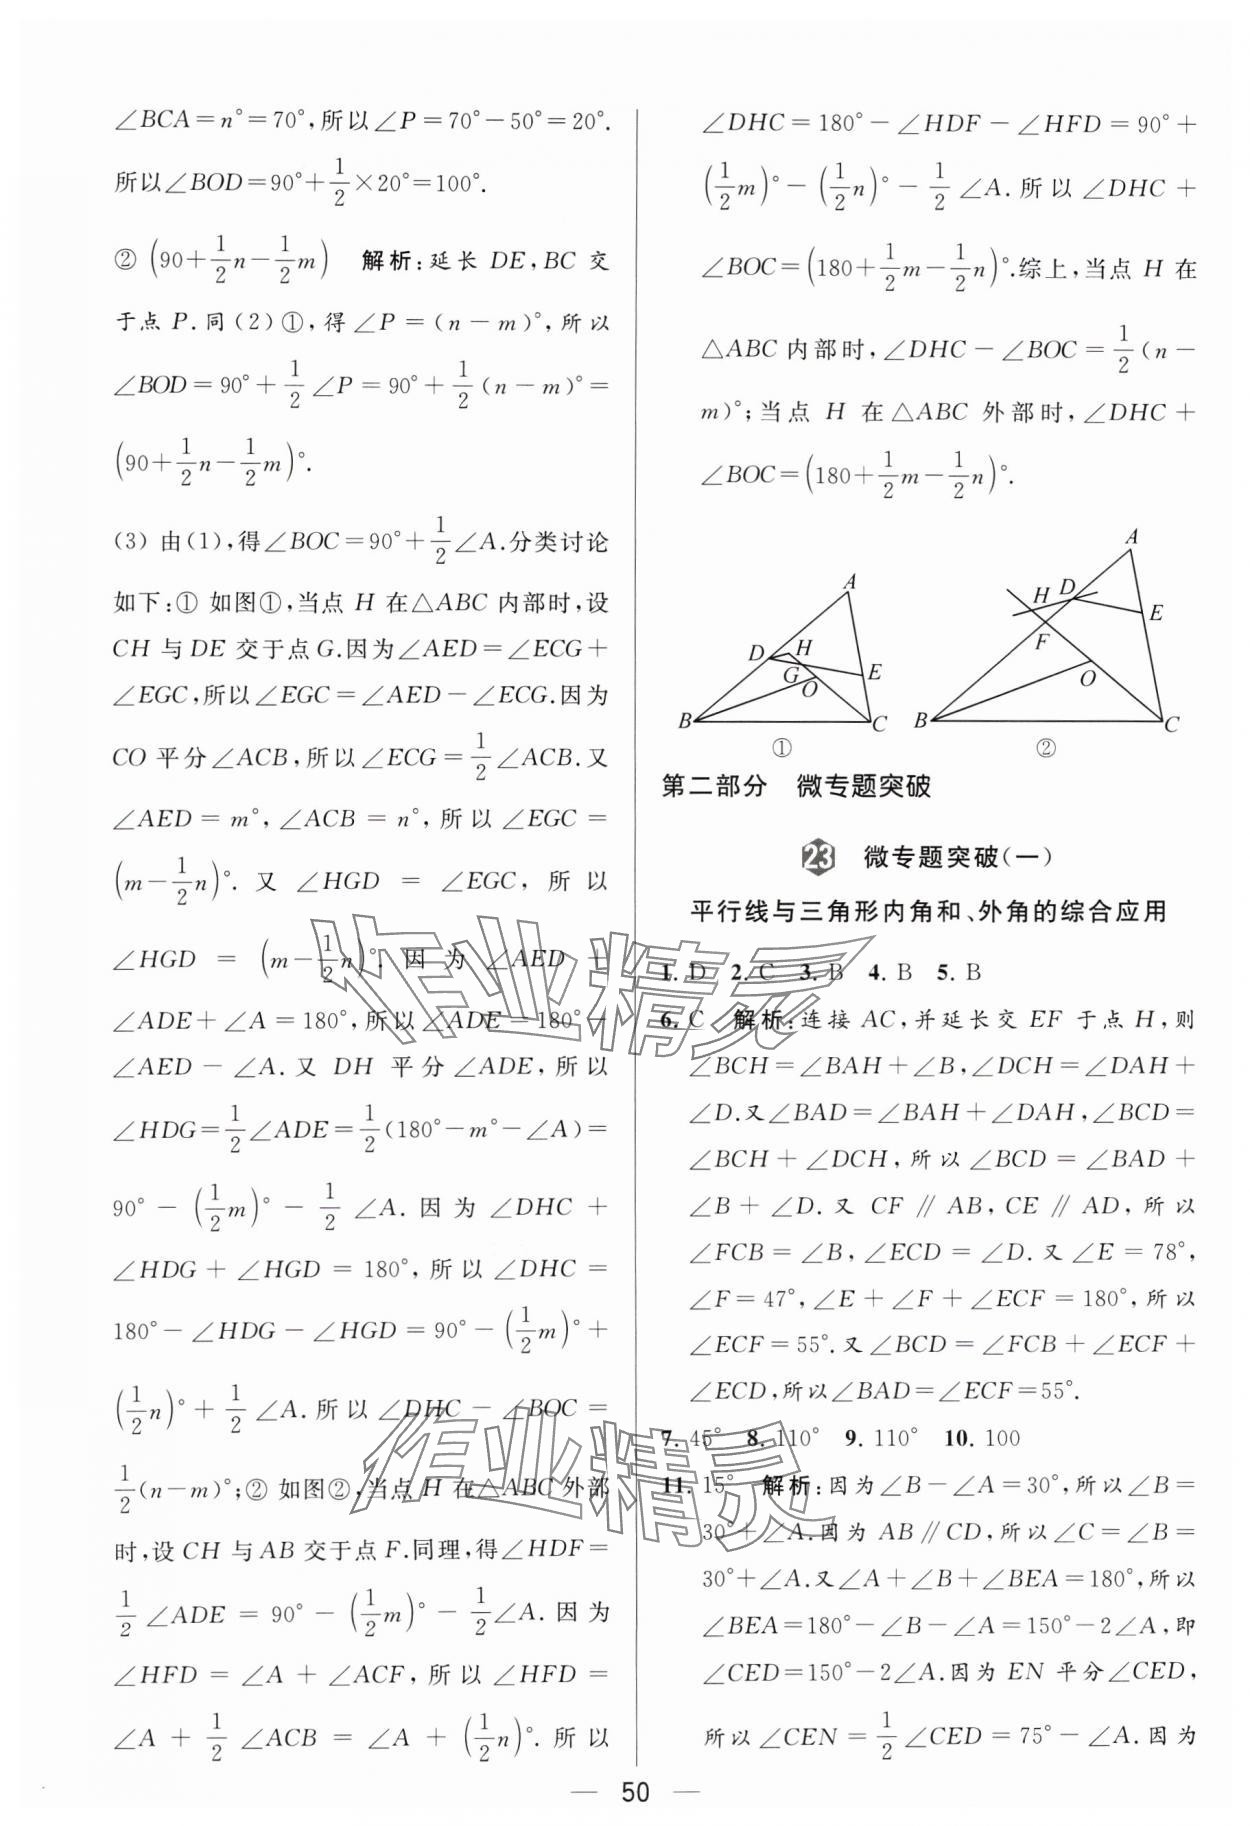 ∠BCA=n°=70°,所以∠P=70°-50°=20°.
所以∠BOD=90°+1/2×20°=100°.
② (90+1/2n-1/2m) 解析:延长 DE,BC 交
于点 P.同(2)①,得∠P=(n-m)°,所以
∠BOD=90°+1/2∠P=90°+1/2(n-m)°=
(90+1/2n-1/2m)°.
(3) 由(1),得∠BOC=90°+1/2∠A.分类讨论
如下:① 如图①,当点 H 在△ABC 内部时,设
CH 与 DE 交于点 G.因为∠AED=∠ECG+
∠EGC,所以∠EGC=∠AED-∠ECG.因为
CO 平分∠ACB,所以∠ECG=1/2∠ACB.又
∠AED=m°,∠ACB=n°,所以∠EGC=
(m-1/2n)°.又∠HGD=∠EGC,所以
∠HGD=(m-1/2n)°.因为∠AED+
∠ADE+∠A=180°,所以∠ADE=180°-
∠AED-∠A.又 DH 平分∠ADE,所以
∠HDG=1/2∠ADE=1/2(180°-m°-∠A)=
90°-(1/2m)°-1/2∠A.因为∠DHC+
∠HDG+∠HGD=180°,所以∠DHC=
180°-∠HDG-∠HGD=90°-(1/2m)°+
(1/2n)°+1/2∠A.所以∠DHC-∠BOC=
1/2(n-m)°;② 如图②,当点 H 在△ABC 外部
时,设 CH 与 AB 交于点 F.同理,得∠HDF=
1/2∠ADE=90°-(1/2m)°-1/2∠A.因为
∠HFD=∠A+∠ACF,所以∠HFD=
∠A+1/2∠ACB=∠A+(1/2n)°.所以
∠DHC=180°-∠HDF-∠HFD=90°+
(1/2m)°-(1/2n)°-1/2∠A.所以∠DHC+
∠BOC=(180+1/2m-1/2n)°.综上,当点 H 在
△ABC 内部时,∠DHC-∠BOC=1/2(n-
m)°;当点 H 在△ABC 外部时,∠DHC+
∠BOC=(180+1/2m-1/2n)°.
A
D
H
G
O
E
B
C
①
A
H
D
E
F
O
B
C
②
第二部分 微专题突破
23 微专题突破(一)
平行线与三角形内角和、外角的综合应用
1. D 2. C 3. B 4. B 5. B
6. C 解析:连接 AC,并延长交 EF 于点 H,则
∠BCH=∠BAH+∠B,∠DCH=∠DAH+
∠D.又∠BAD=∠BAH+∠DAH,∠BCD=
∠BCH+∠DCH,所以∠BCD=∠BAD+
∠B+∠D.又 CF∥AB,CE∥AD,所以
∠FCB=∠B,∠ECD=∠D.又∠E=78°,
∠F=47°,∠E+∠F+∠ECF=180°,所以
∠ECF=55°.又∠BCD=∠FCB+∠ECF+
∠ECD,所以∠BAD=∠ECF=55°.
7. 45° 8. 110° 9. 110° 10. 100
11. 15° 解析:因为∠B-∠A=30°,所以∠B=
30°+∠A.因为 AB∥CD,所以∠C=∠B=
30°+∠A.又∠A+∠B+∠BEA=180°,所以
∠BEA=180°-∠B-∠A=150°-2∠A,即
∠CED=150°-2∠A.因为 EN 平分∠CED,
所以∠CEN=1/2∠CED=75°-∠A.因为
作业精灵
作业精灵
— 50 —